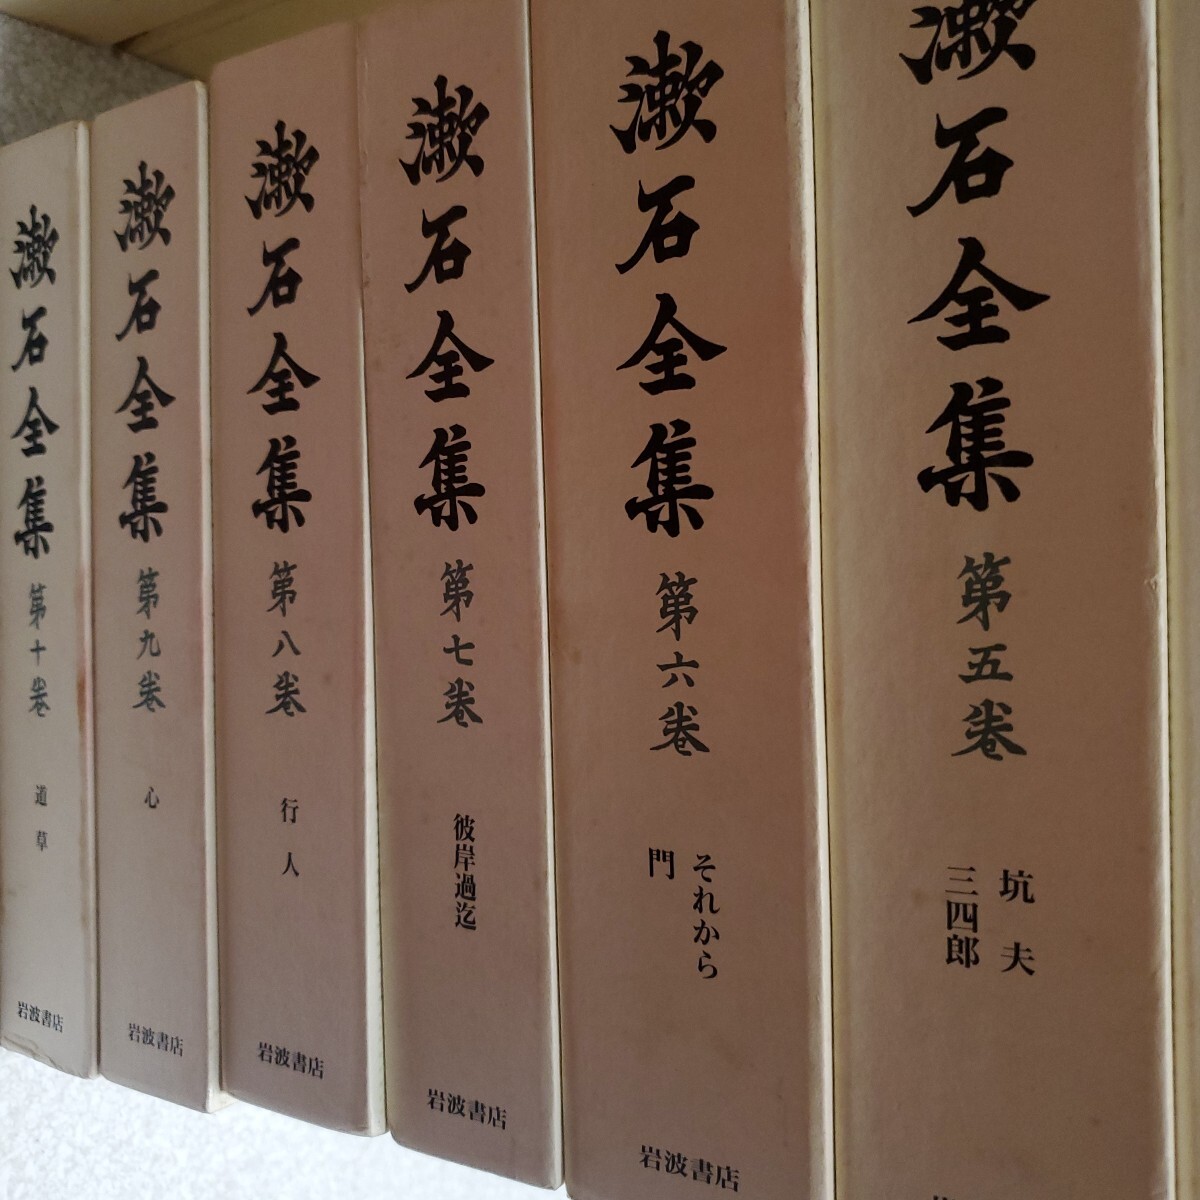 漱石全集 第五巻
坑夫
三四郎
漱石全集 第六巻
それから
門
岩波書店
漱石全集 第七巻
彼岸過迄
岩波書店
漱石全集 第八巻
行人
岩波書店
漱石全集 第九巻
心
岩波書店
漱石全集 第十巻
道草
岩波書店